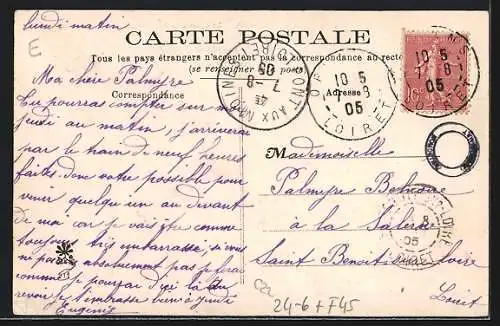 E
lundi matin
CARTE POSTALE
Tous les pays étrangers n'acceptent pas la correspondance au recto
(se renseigner à la poste)
Correspondance
Adresse
Ma chère Palmyre
Tu pourras compter sur moi
jeudi au matin, j'arriverai
par le train de neuf heures
faites donc votre possible pour
venir quelqu'un au devant
de moi car je vais être comme
toujours très embarrassée, si vous
ne pouvez absolument pas je ferai
comme je pourrai d'ici là au
revoir je t'embrasse bien à jeudi
Eugénie
LOIRET
7-8
05
45
10 5
8
05
LOIRET
10 5
05
Mademoiselle
Palmyre
à la
Saint Benoit sur Loire
Loiret
LOIRE
8
05
517
C22
24-6 + F45